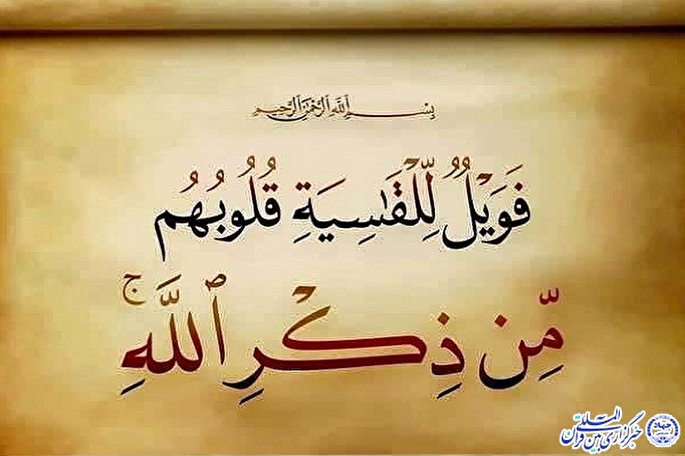 بِسْمِ ٱللَّهِ ٱلرَّحْمَٰنِ ٱلرَّحِيمِ
فَوَيْلٌ لِّلْقَٰسِيَةِ قُلُوبُهُم
مِّن ذِكْرِ ٱللَّهِ ۚ
خبرگزاری بین‌المللی قرآن